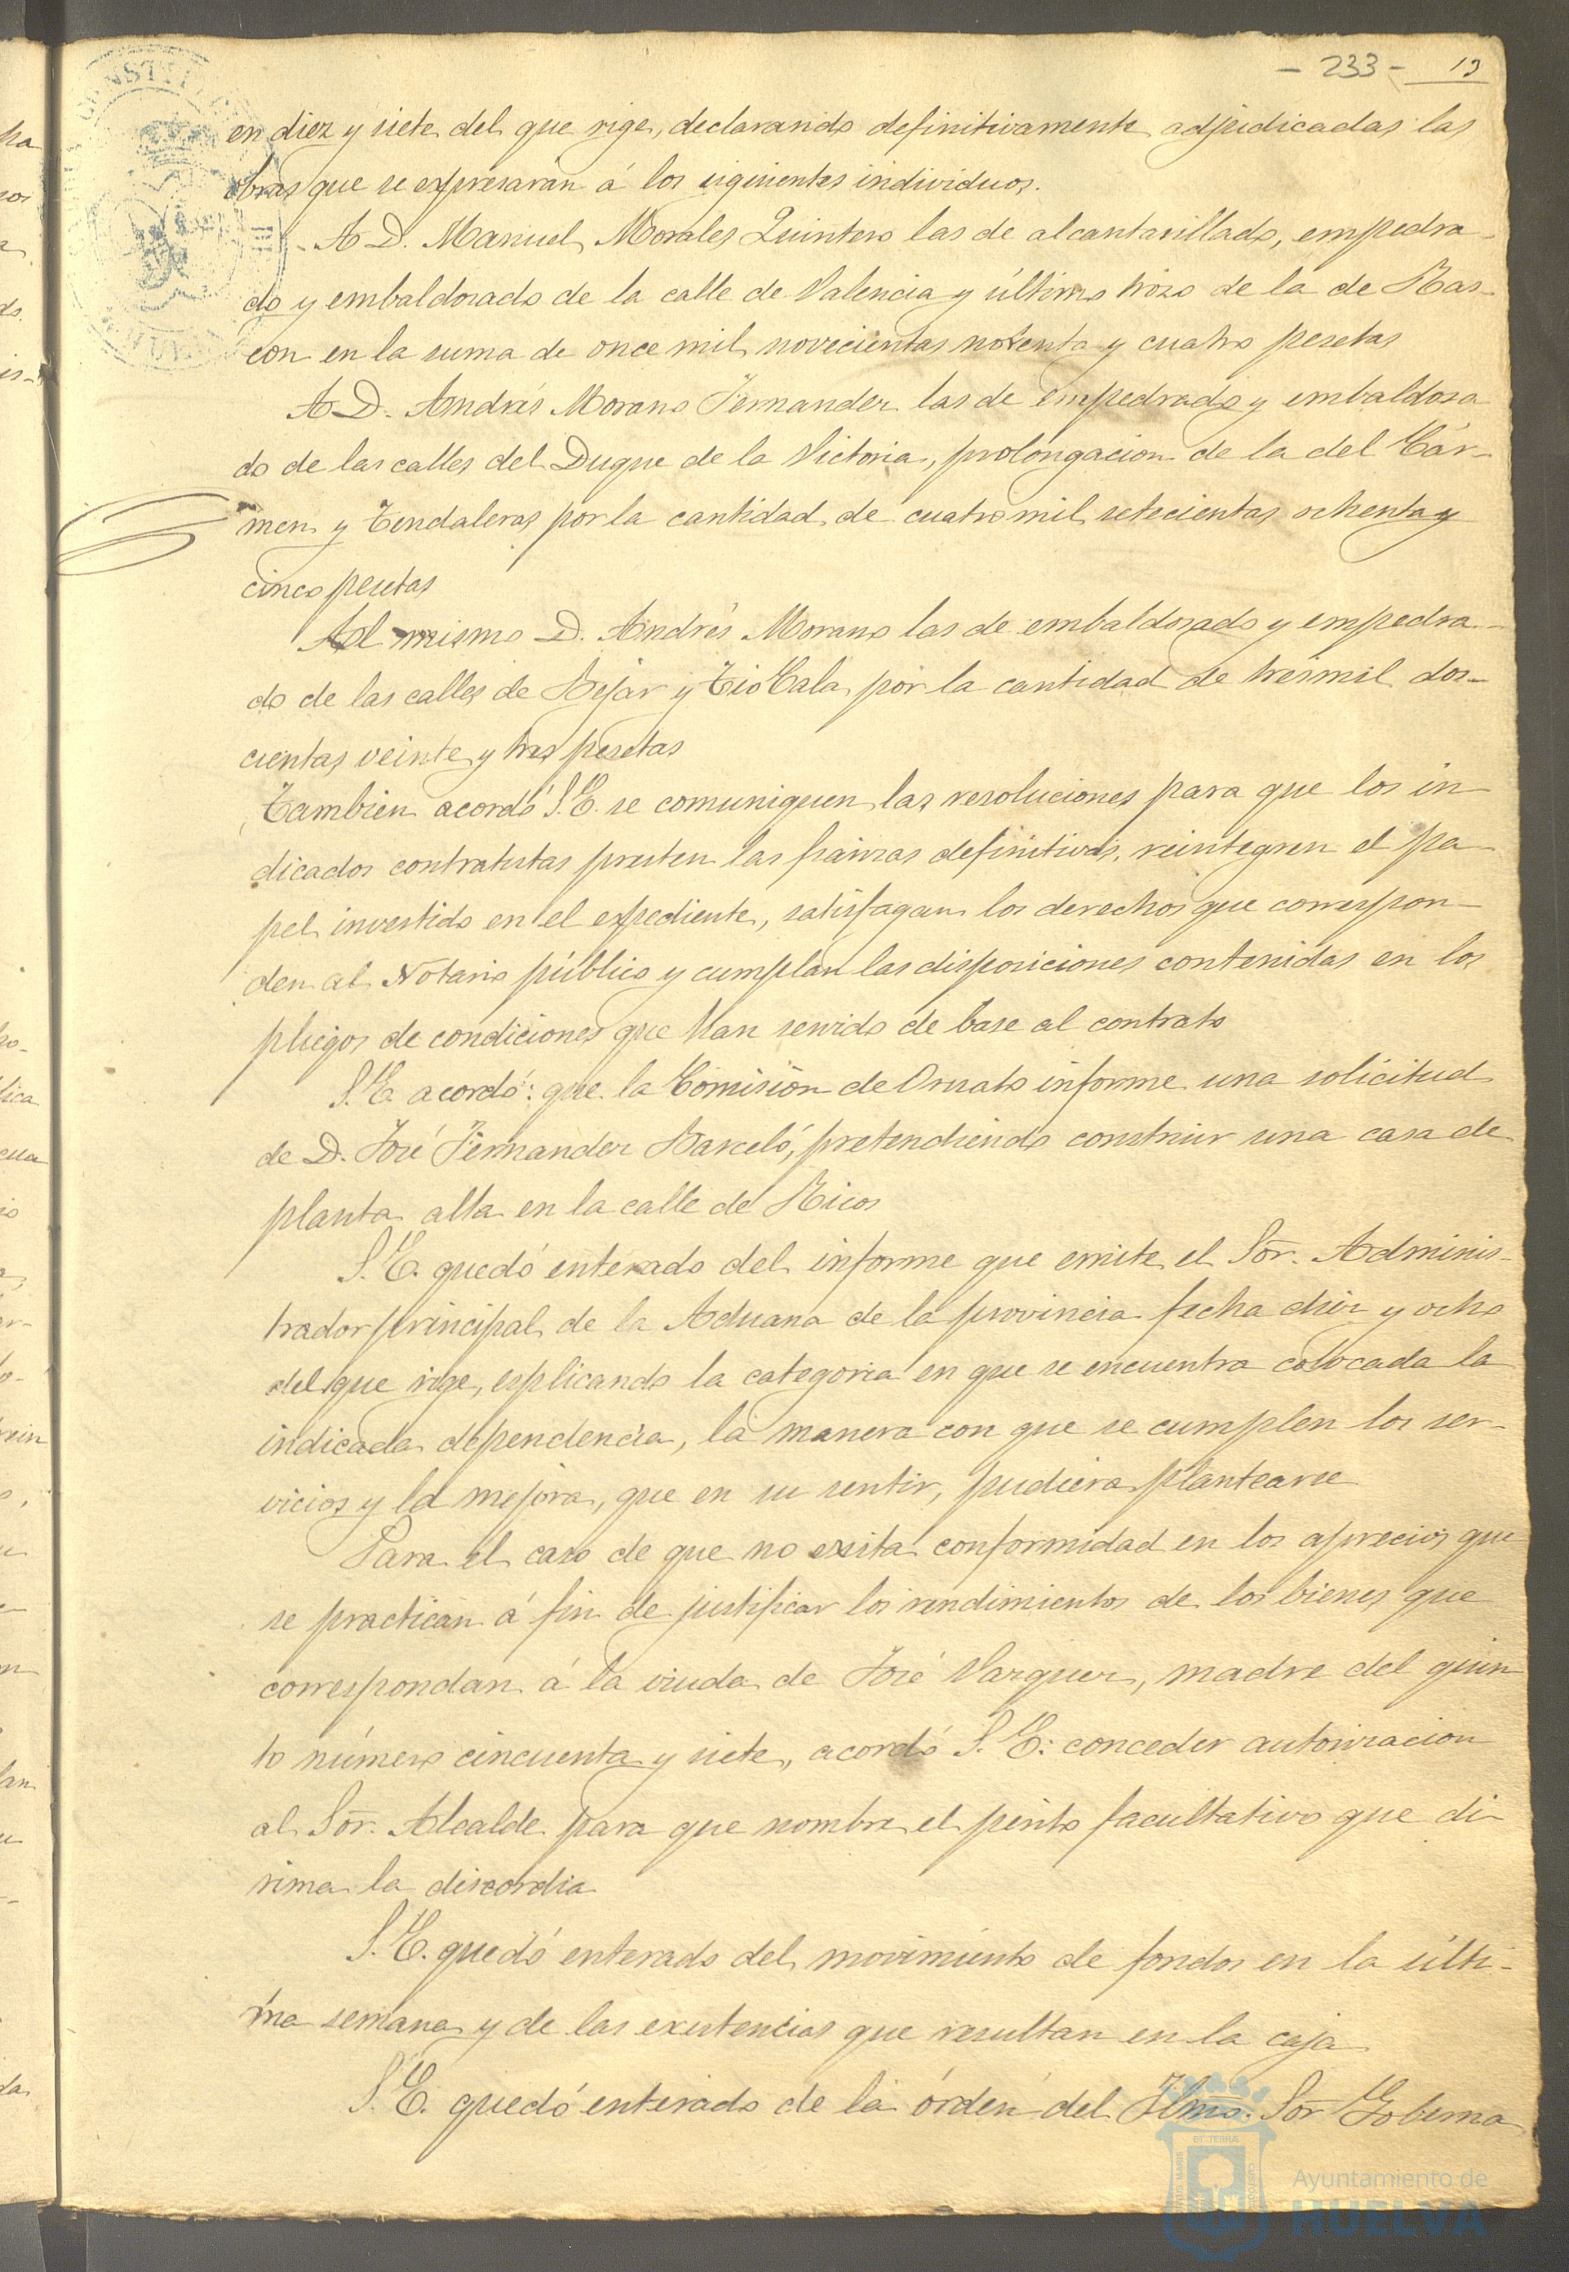 - 233 - 13
en diez y siete del que rige, declarando definitivamente adjudicadas las
obras que se expresarán á los siguientes individuos.
A D. Manuel Morales Quintero las de alcantarillado, empedra-
do y embaldosado de la calle de Valencia y último trozo de la de Ras-
con en la suma de once mil novecientas noventa y cuatro pesetas
A D. Andrés Morano Fernandez las de empedrado y embaldosa
do de las calles del Duque de la Victoria, prolongacion de la del Cár-
men y Tendaleras por la cantidad de cuatro mil setecientas ochenta y
cinco pesetas
Al mismo D. Andrés Morano las de embaldosado y empedra-
do de las calles de Bejar y Tio Cala por la cantidad de tres mil dos-
cientas veinte y tres pesetas
Tambien acordó S.E. se comuniquen las resoluciones para que los in-
dicados contratistas presten las fianzas definitivas, reintegren el pa-
pel invertido en el expediente, satisfagan los derechos que correspon-
den al Notario público y cumplan las disposiciones contenidas en los
pliegos de condiciones que han servido de base al contrato
S.E. acordó: que la Comision de Ornato informe una solicitud
de D. José Fernandez Barceló, pretendiendo construir una casa de
planta alta en la calle de Ricos
S.E. quedó enterado del informe que emite el Sor. Adminis-
trador principal de la Aduana de la provincia fecha diez y ocho
del que rige, esplicando la categoria en que se encuentra colocada la
indicada dependencia, la manera con que se cumplen los ser-
vicios y la mejora, que en su sentir, pudiera plantearse
Para el caso de que no exista conformidad en los aprecios que
se practican á fin de justificar los rendimientos de los bienes que
correspondan á la viuda de José Vazquez, madre del quin
to número cincuenta y siete, acordó S.E: conceder autorizacion
al Sor. Alcalde para que nombre el perito facultativo que di-
rima la discordia
S.E. quedó enterado del movimiento de fondos en la últi-
ma semana y de las existencias que resultan en la caja
S.E. quedó enterado de la órden del Ilmo. Sor Goberna
Ayuntamiento de
HUELVA